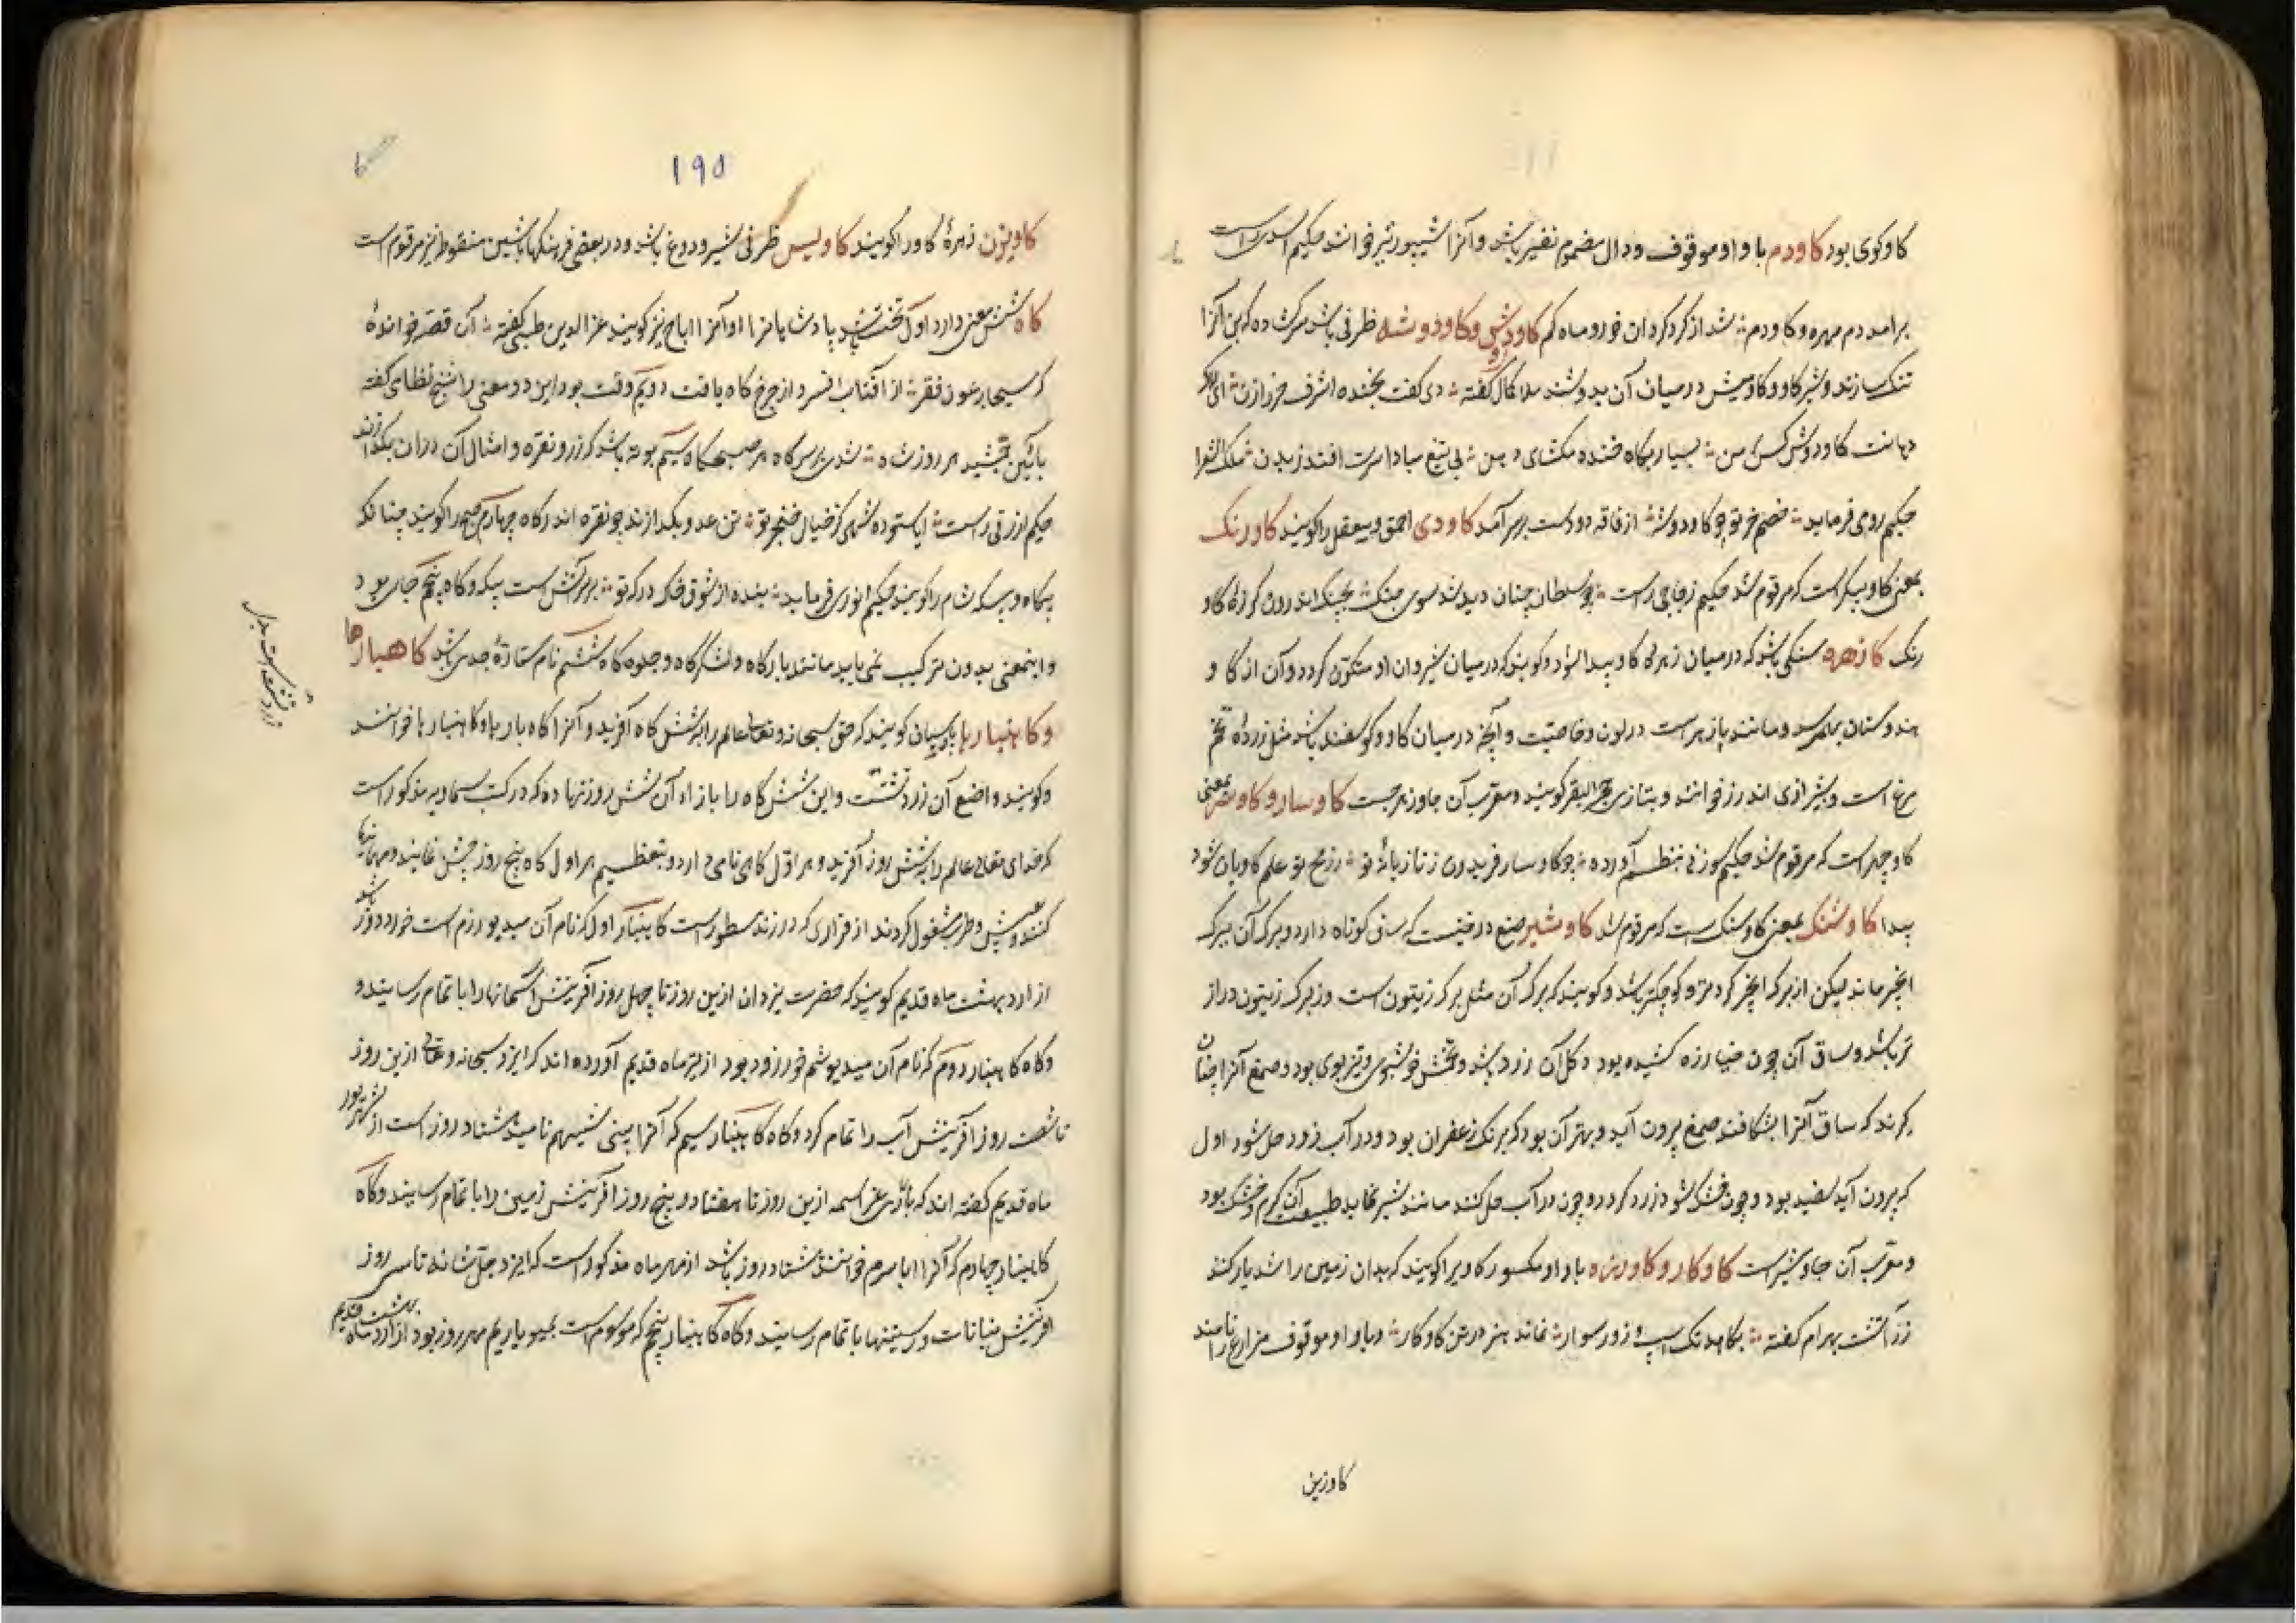 کاوکوی بود کاودم با واو موقوف و دال مضموم نفیر باشد و آنرا شیپور نیز خوانند حکیم اسدی راست
برامد دم مهره و کاودم شد از کرد کردان خور و ماه کم کاودوش و کاودوشه ظرفی باشد سرکشاده که بن آنرا
تنک سازند و شیر کاو و کاومیش در میان آن بدوشند ملا کمال کفته دی کفت بخنده اشرف خر رازن ای
دهانت کاودوش کس من بسیار بکاه خنده مکشای دهن بی تیغ مبادا سرت افتد ز بدن ملک الشعرا
حکیم روی فرماید خصم خر تو چو کاودوشه از فاقه دو دست بر سر آمد کاودی احمق و بیعقل را کویند کاورنک
بمعنی کاو پیکر است که مرقوم شد حکیم زجاجی راست چو سلطان چنان دید شد سوی جنک بچنک اندرون کرزه کاو
رنک کازهره سنکی باشد که در میان زهره کاو پیدا شود و کویند که در میان شیردان او متکون کردد و آن از کاو
هندوستان بهم رسد و مانند پازهر است در لون و خاصیت و آنچه در میان کاو و کوسفند باشد مثل زرده تخم
مرغ است و بشیرازی اندرز خوانند و بتازی حجر البقر کویند و معرب آن جاوزهرجست کاوسار و کاوسر بمعنی
کاوچهر است که مرقوم شد حکیم سوزنی بنظم آورده چو کاوسار فریدون ز تازیانه تو ز رمح تو علم کاویان شود
پیدا کاوشنک بمعنی کاوسنک است که مرقوم شد کاوشیر صمغ درختیست که ساق کوتاه دارد و برک آن ببرک
انجیر ماند لیکن از برک انجیر کردتر و کوچکتر باشد و کویند که برک آن مثل برک زیتون است و ز برک زیتون دراز
تر باشد و ساق آن چون خیارزه کشیده بود و کل آن زرد باشد و تخمش خوشبوی و تیزبوی بود و صمغ آنرا چنان
کیرند که ساق آنرا بشکافند صمغ بیرون آید و بهتر آن بود که برنک زعفران بود و در آب زود حل شود اول
که بیرون آید سفید بود و چون خشک شود زرد کردد و چون در آب حل کنند مانند شیر نماید طبیعت آن کرم و خشک بود
و معرب آن جاوشیر است کاوکار و کاورزه با واو مکسور کاویرا کویند که بدان زمین را شدیار کنند
زرآتشت بهرام کفته بکاهد تک اسپ و زور سوار نماند هنر در تن کاوکار و با واو موقوف مزارع را نامند
کاوزین
۱۹۵
کاویزن زهره کاو را کویند کاویس ظرفی شیر و دوغ باشد و در بعضی فرهنکها باشین منقوط نیز مرقوم است
کاه شش معنی دارد اول تخت باشد پادشاهانرا و آنرا اباح نیز کویند عزالدین طبسی کفته آن قصه خوانده
که مسیحا بعون فقر از آفتاب افسر و از چرخ کاه یافت دویم وقت بود این دو معنی را شیخ نظامی کفته
بآئین جمشید هر روز شاه شدی بر سر کاه هر صبحکاه سیم بوته باشد که زر و نقره و امثال آن دران بکدازند
حکیم ازرقی راست ایا ستوده شهی کز خیال خنجر تو تن عدو بکدازند چو نقره اندر کاه چهارم صبح را کویند چنانکه
پکاه و بیکه شام را کویند حکیم انوری فرماید بنده از شوق خاک درکه تو بر سر آتش است پیکه و کاه پنجم جای بود
و اینمعنی بدون ترکیب نمی یابد مانند بارکاه و لشکرکاه و جلوه کاه ششم نام ستاره جدی باشد کاهبارها
و کاهنبارها پارسیان کویند که حق سبحانه و تعالی عالم را بشش کاه آفرید و آنرا کاه بارها و کاهنبارها خوانند
و کویند واضع آن زردتشت و این شش کاه را بازاء آن شش روز نهاده که در کتب سماویه مذکور است
که خدای تعالی عالم را بشش روز آفرید و هر اول کاهی نامی دارد و بتعظیم هر اول کاه پنج روز جشن نمایند و مهمانیها
کنند و بعیش و طرب مشغول کردند از قراری که در زند مسطور است کاهنبار اول که نام آن میدیوزرم است خرداد روز باشد
از اردیبهشت ماه قدیم کویند که حضرت یزدان ازین روز تا چهل روز آفرینش آسمانها را با تمام رسانید و
وکاه کاهنبار دوم که نام آن میدیوشم خور روز بود از تیر ماه قدیم آورده اند که ایزد سبحانه و تعالی ازین روز
تا شصت روز آفرینش آب را تمام کرد و کاه کاهنبار سیم که آنرا پیتی شهیم نامند اشتاد روز است از شهریور
ماه قدیم کفته اند که باری عز اسمه ازین روز تا هفتاد و پنج روز آفرینش زمین را با تمام رسانید و کاه
کاهنبار چهارم که آنرا ایاسرم خوانند اشتاد روز باشد از مهر ماه مذکور است که ایزد جل شانه تا سی روز
آفرینش نباتات و رستنیها با تمام رسانید و کاه کاهنبار پنجم که موسوم است بمیدیاریم مهر روز بود از دی ماه قدیم